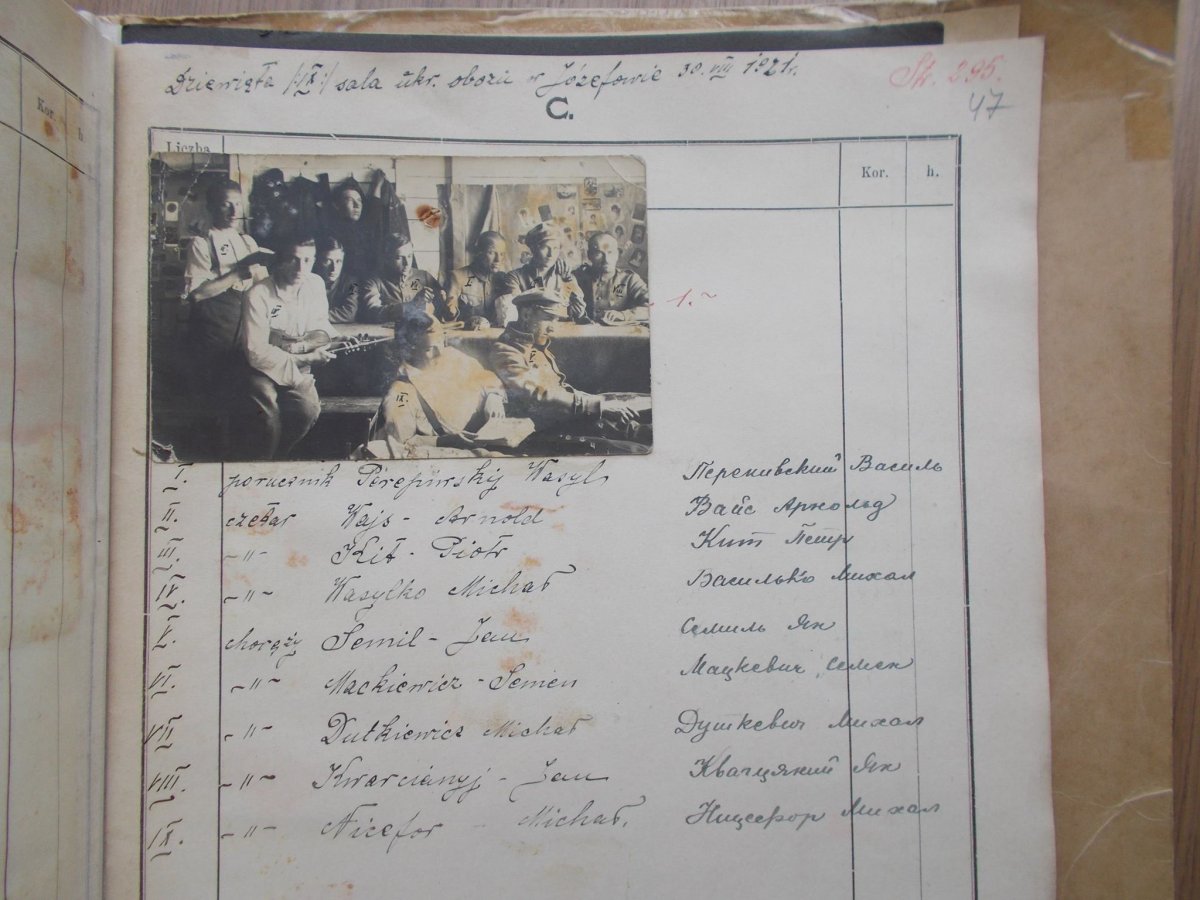 Dziewiąta /:IX:/ sala ukr. obozu w Józefowie 30. VIII 1921 r.
Str. 295.
47
C.
Liczba
Kor. h.
Kor. h.
1.~
I. porucznik Perepiwskij Wasyl Перепивский Василь
II. czetar Wajs - Arnold Вайс Арнольд
III. -"- Kit - Piotr Кит Петр
IV. -"- Wasylko Michał Василько Михал
V. chorąży Semil - Jan Семиль Ян
VI. -"- Mackiewicz - Semen Мацкевич Семен
VII -"- Dutkiewicz Michał Дуткевич Михал
VIII. -"- Kwarcianyj - Jan Ян
IX. -"- Nicefor - Michał. Ницефор Михал